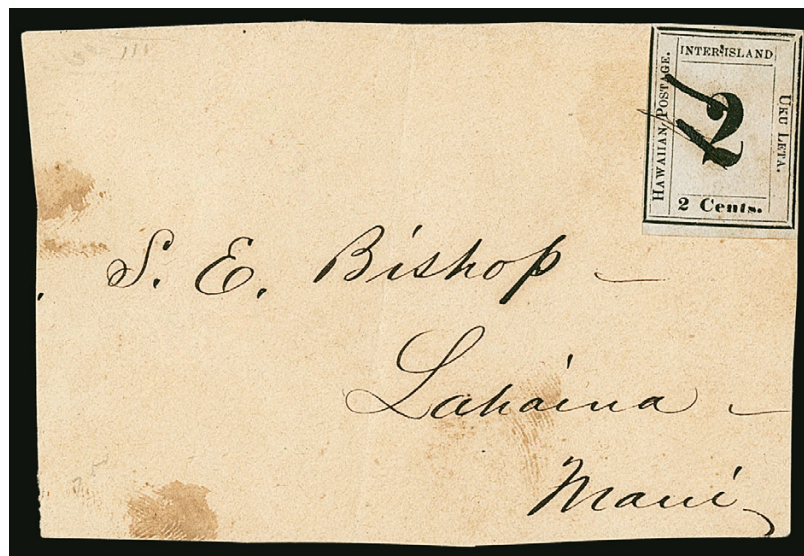 INTER-ISLAND
HAWAIIAN POSTAGE.
2
UKU LETA.
2 Cents.
S. E. Bishop
Lahaina
Maui